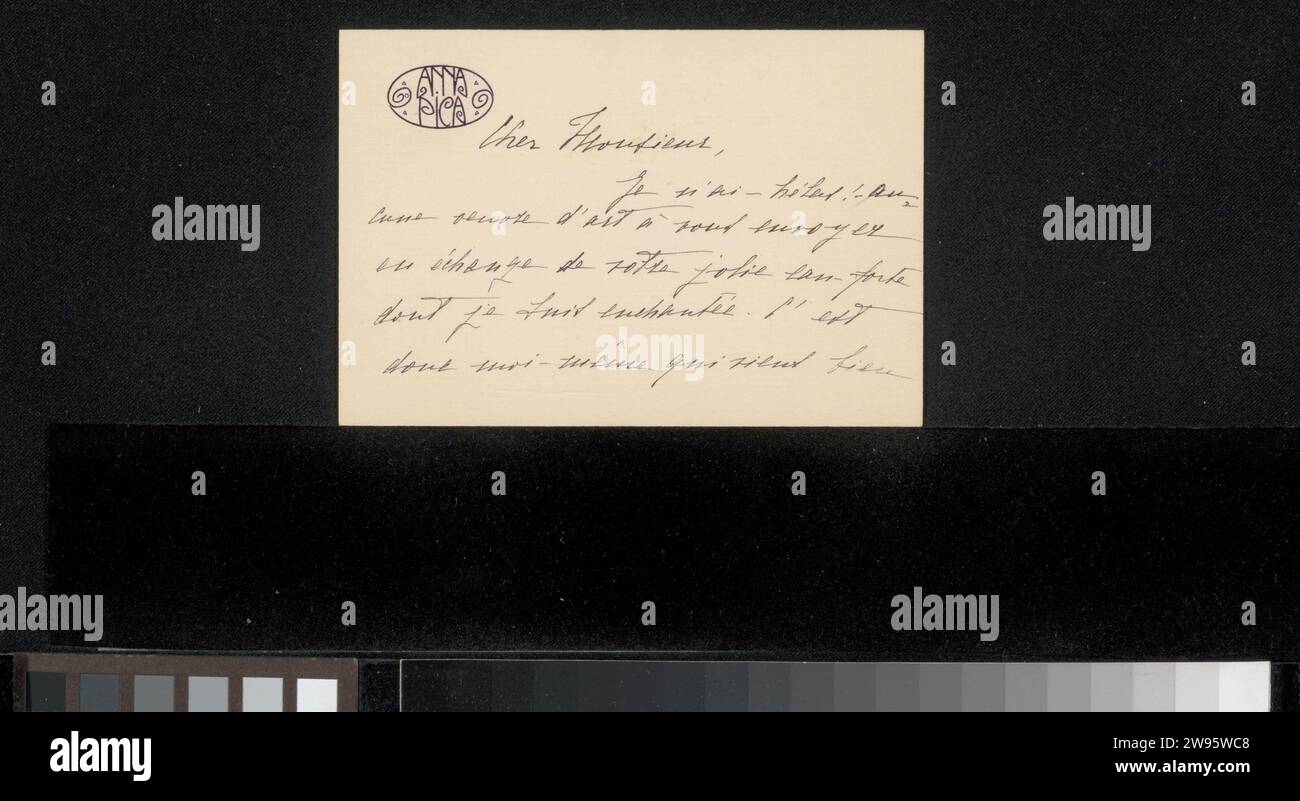 ANNA
PICA
Cher Monsieur,
Je n'ai - hélas! - au=
cune oeuvre d'art à vous envoyer
en échange de votre jolie eau-forte
dont je suis enchantée. C'est
donc moi-même qui vient bien
a alamy
alamy
Image ID: 2W95WC8
www.alamy.com